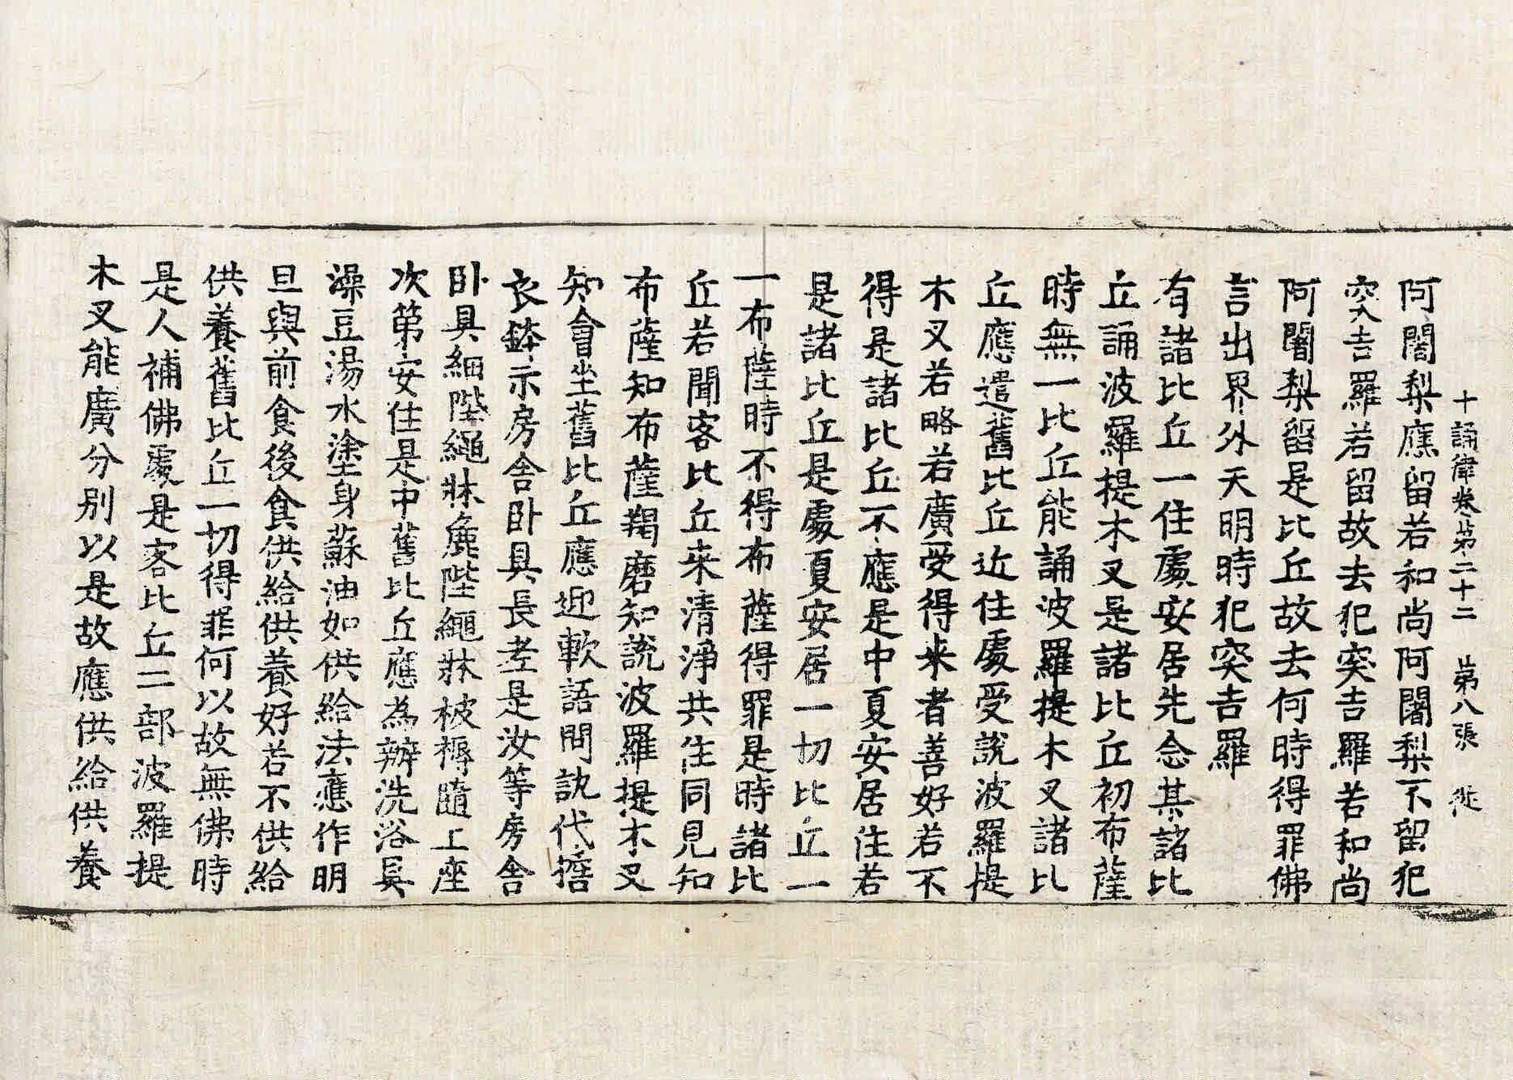 十誦律卷第二十二 第八張 㢟
阿闍梨應留若和尚阿闍梨不留犯
突吉羅若留故去犯突吉羅若和尚
阿闍梨留是比丘故去何時得罪佛
言出界外天明時犯突吉羅
有諸比丘一住處安居先念其諸比
丘誦波羅提木叉是諸比丘初布薩
時無一比丘能誦波羅提木叉諸比
丘應遣舊比丘近住處受說波羅提
木叉若略若廣受得来者善好若不
得是諸比丘不應是中夏安居住若
是諸比丘是處夏安居一切比丘一
一布薩時不得布薩得罪是時諸比
丘若聞客比丘来清淨共住同見知
布薩知布薩羯磨知說波羅提木叉
知會坐舊比丘應迎軟語問訊代擔
衣鉢示房舍卧具長老是汝等房舍
卧具細陛繩牀麁陛繩牀被褥隨上座
次第安住是中舊比丘應為辦洗浴具
澡豆湯水塗身蘇油如供給法應作明
旦與前食後食供給供養好若不供給
供養舊比丘一切得罪何以故無佛時
是人補佛處是客比丘二部波羅提
木叉能廣分別以是故應供給供養